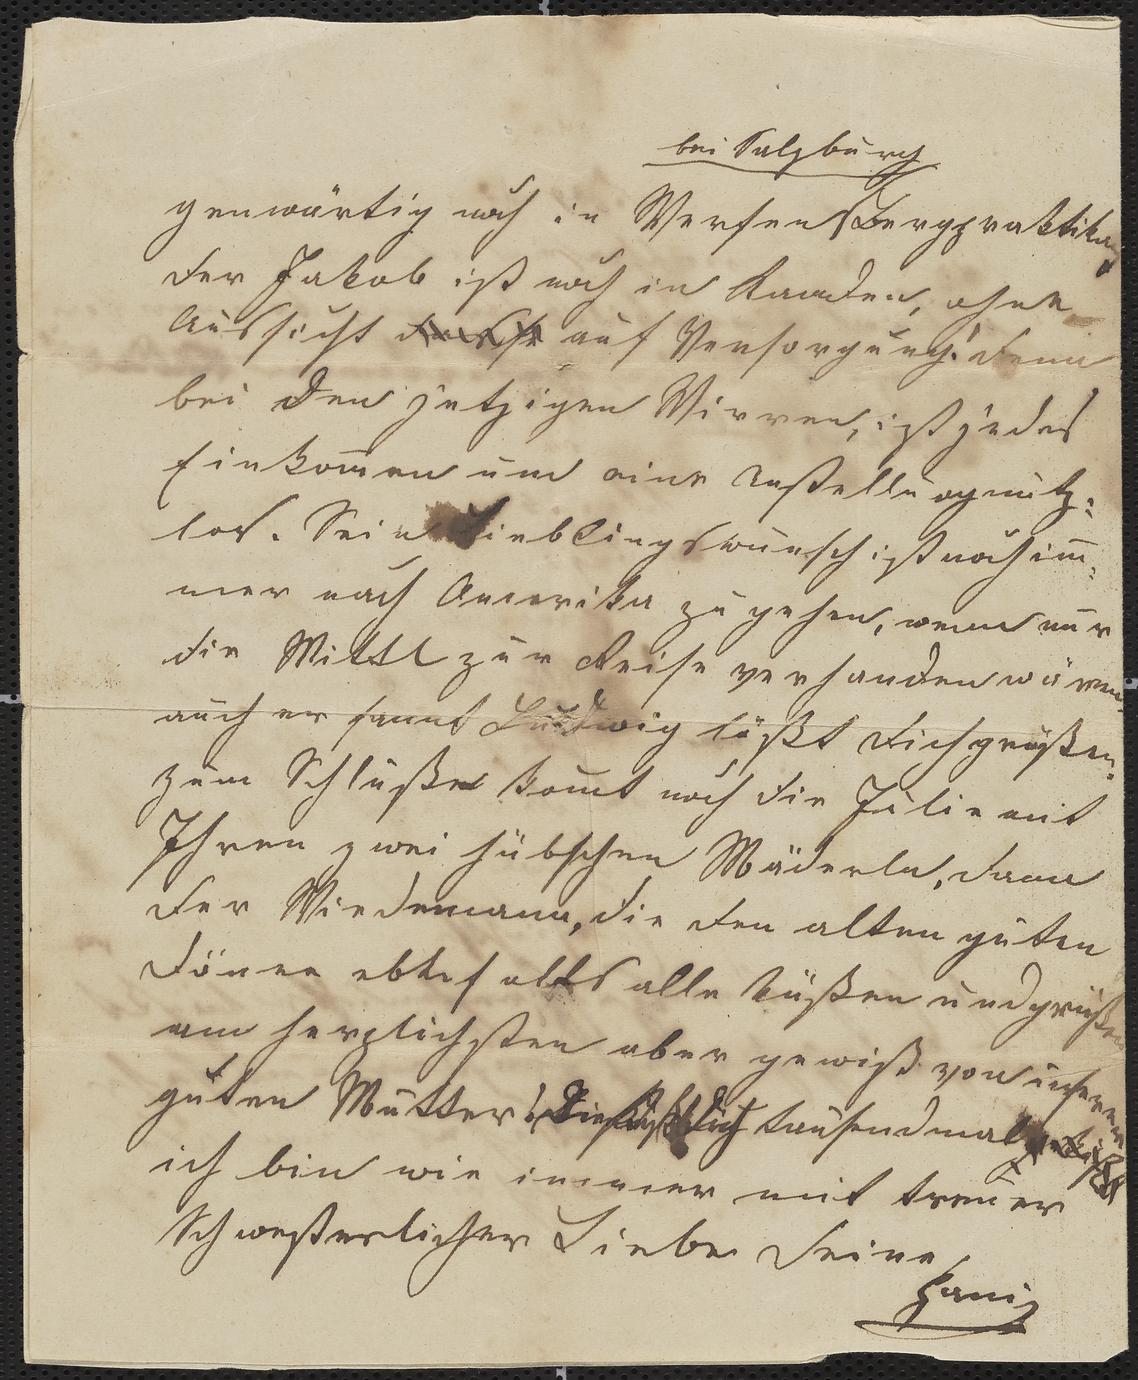 bei Salzburg
genwärtig noch in Werfen Bergpraktikant
der Jakob ist noch in Kaaden, ohne
Aussicht auf Versorgung! denn
bei den jetzigen Wirren, ist jedes
Einkom̄en um eine Anstellung nutz:
los. Sein Lieblingswunsch ist noch im̄:
mer nach Amerika zu gehen, wenn nur
die Mittl zur Reise verhanden wären,
auch er sammt Ludwig läßt dich grüßen.
zum Schluße kom̄t noch die Julie mit
Ihren zwei hübschen Mäderln, dann
der Wiedemann, die den alten guten
ebenfalls alle küßen und grüßen
am herzlichsten aber gewiß von unserer
guten Mutter! Sie küßt dich tausendmal
ich bin wie immer mit treuer
Schwesterlicher Liebe Deine
Hani